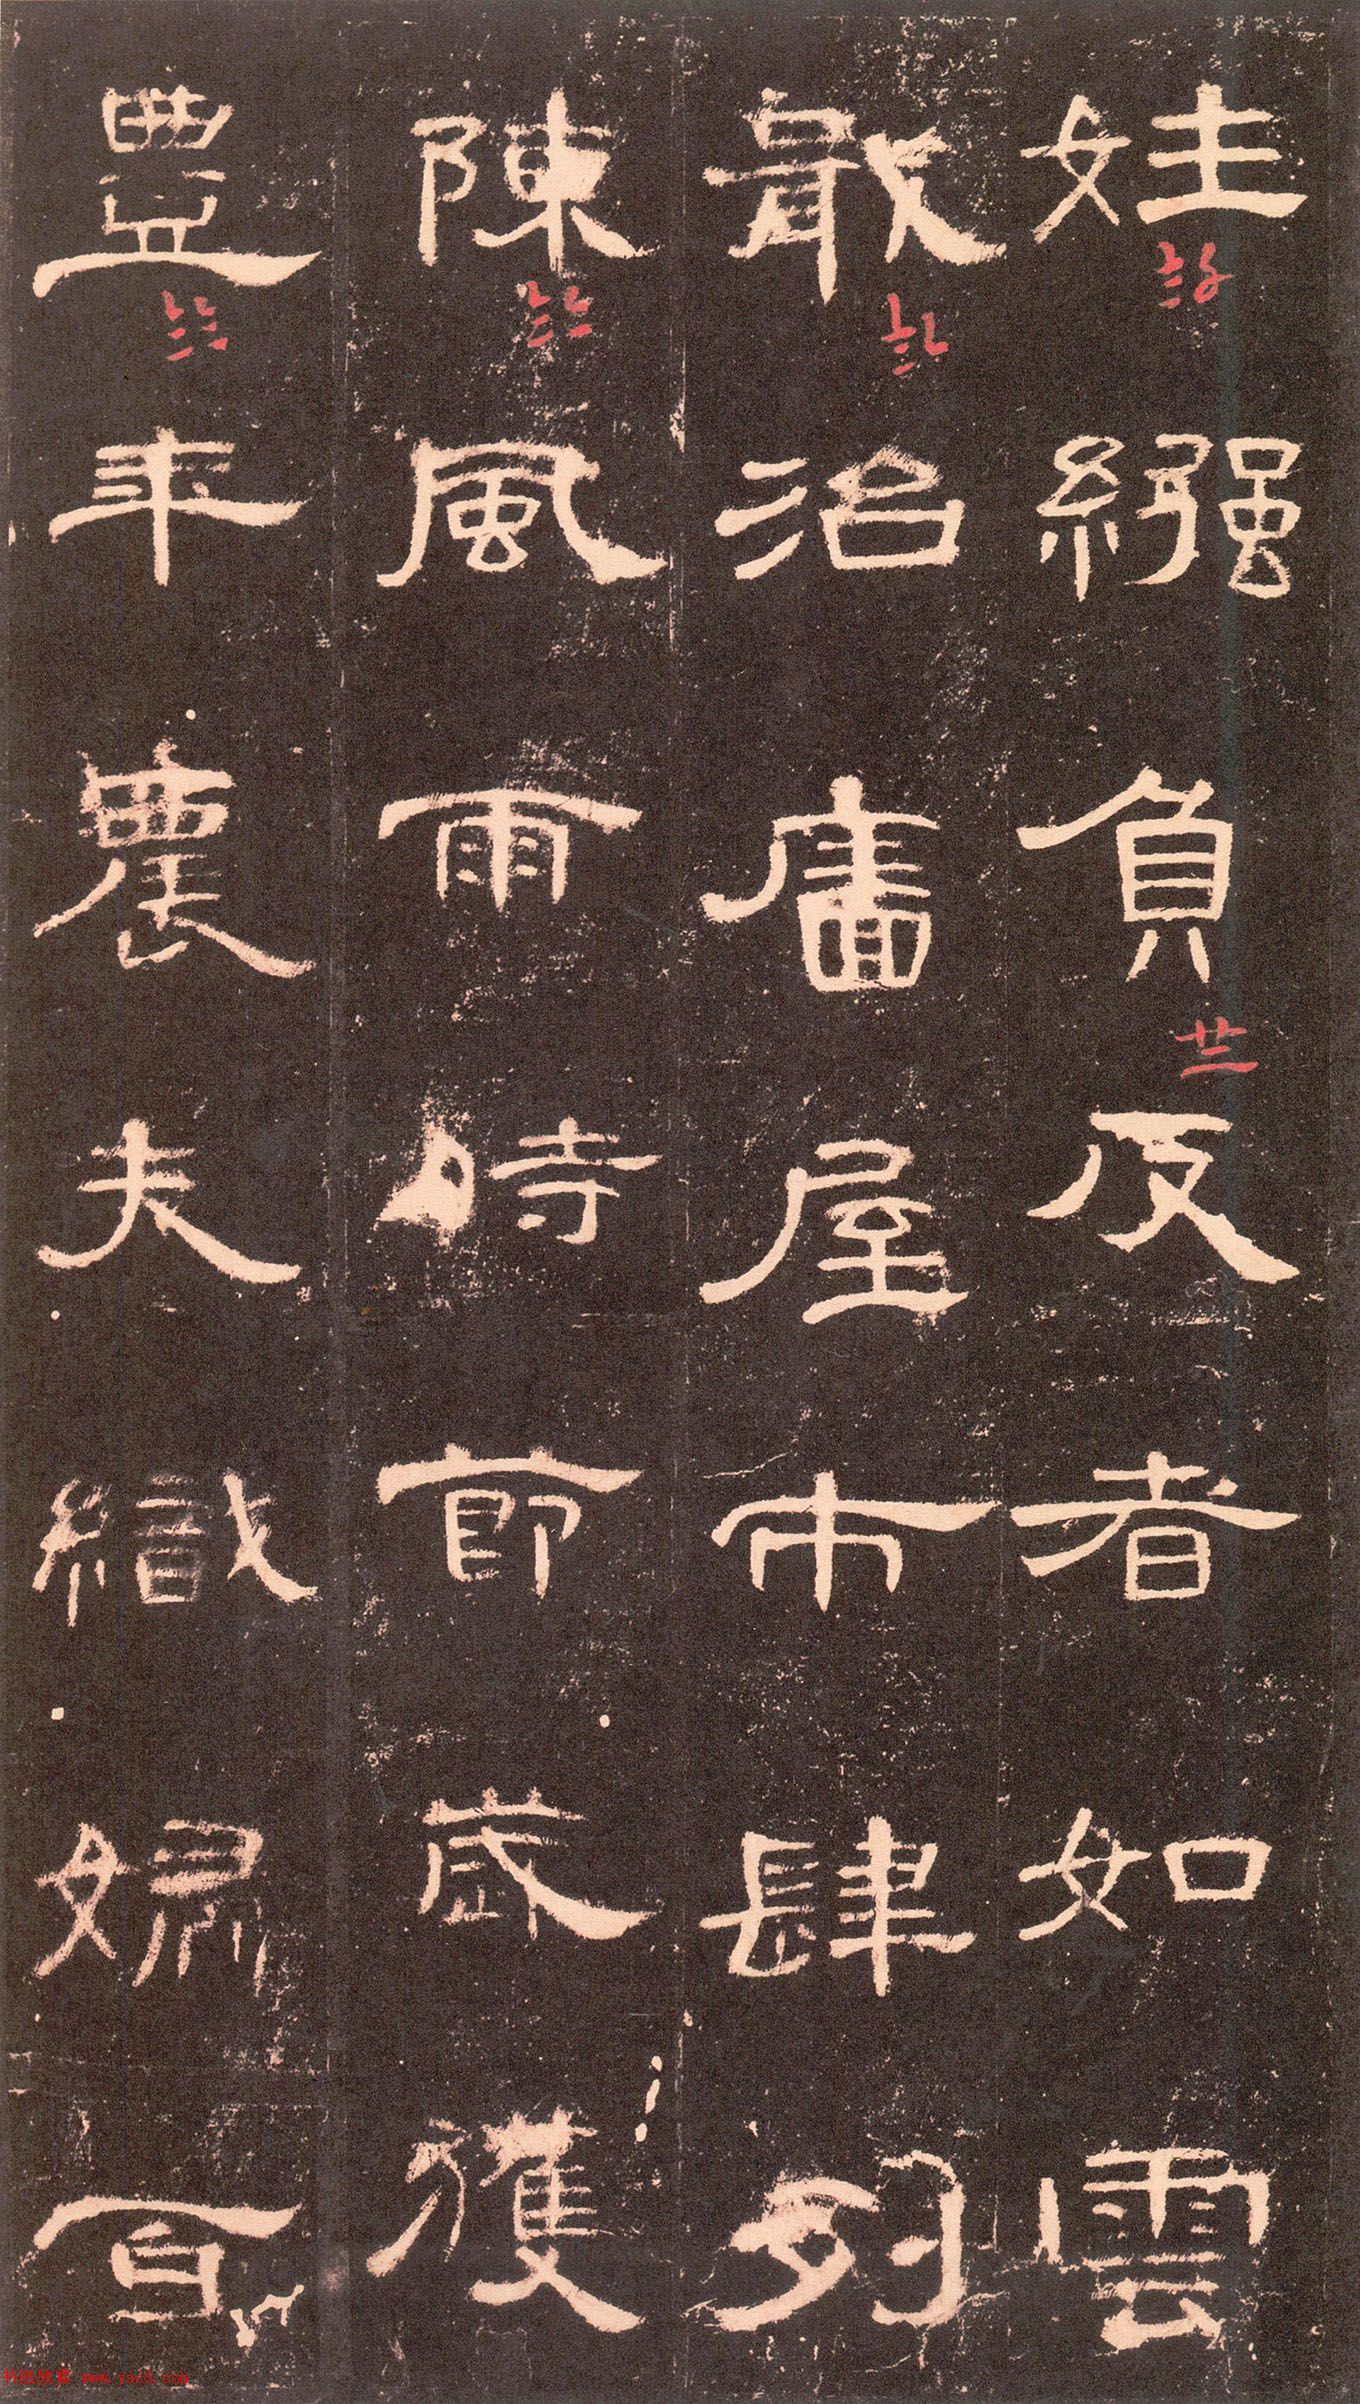 姓繦負反者如雲
戢治廧屋市肆列
陳風雨時節歲獲
豐年農夫織婦百
书法欣赏 www.yac8.com